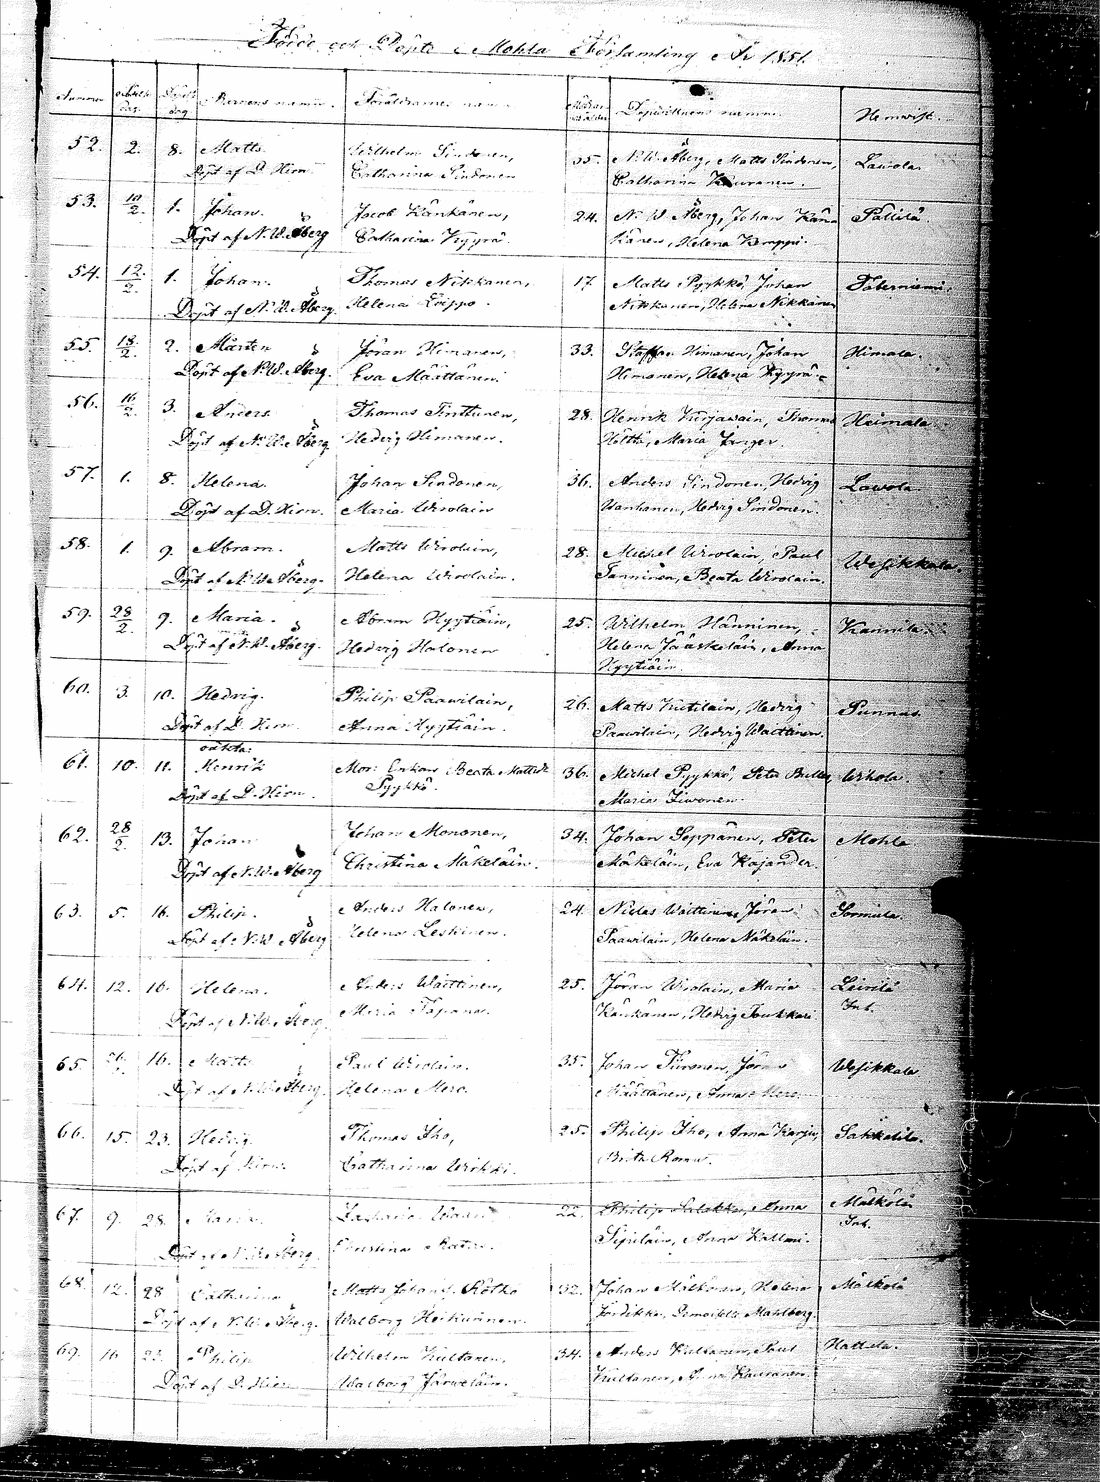 Födde och Döpte i Mohla Församling År 1851.
Nummer Födelse dag. Döpelse dag Barnens namn Föräldrarnes namn Modrens ålder Dopvittnens namn Hemvist.
52. 2. 8. Matts. Wilhelm Sindonen, 35. N. W. Åberg, Matts Sindonen, Lawola.
Döpt af D. Hirn. Catharina Sindonen Catharina Kauranen.
53. 10/2. 1. Johan. Jacob Känkänen, 24. N. W. Åberg, Johan Kän Pällilä.
Döpt af N. W. Åberg Catharina Kyyrä. känen, Helena Kemppi.
54. 12/2. 1. Johan. Thomas Nikkanen, 17. Matts Pyykkö, Johan Taberniemi.
Döpt af N. W. Åberg. Helena Loippo. Nikkanen, Helena Nikkanen
55. 18/2. 2. Mårten Jöran Himanen, 33. Staffan Himanen, Johan Himala.
Döpt af N. W. Åberg. Eva Määttänen. Himanen, Helena Kyyrä.
56. 16/2. 3. Anders. Thomas Tinttinen, 28. Henrik Kurjawain, Thomas Heimala.
Döpt af N. W. Åberg. Hedvig Himanen. Holtti, Maria Junger.
57. 1. 8. Helena. Johan Sindonen, 36. Anders Sindonen, Hedvig Lawola.
Döpt af D. Hirn. Maria Wirolain Wanhanen, Hedvig Sindonen.
58. 1. 9. Abram. Matts Wirolain, 28. Michel Wirolain, Paul Wesikkala.
Döpt af N. W. Åberg. Helena Wirolain. Tanninen, Beata Wirolain.
59. 28/2 9. Maria. Abram Hyytiäin, 25. Wilhelm Hänninen, Kannila.
Döpt af N. W. Åberg. Hedvig Halonen Helena Jääskeläin, Anna
Hyytiäin.
60. 3. 10. Hedvig. Philip Paawilain, 26. Matts Kutilain, Hedvig Punnus.
Döpt af D. Hirn. Anna Hyytiäin. Paawilain, Hedvig Waittinen.
oäkta:
61. 10. 11. Henrik Mor: Enkan Beata Mattsdr 36. Michel Pyykkö, Peter Wirhola.
Döpt af D. Hirn. Pyykkö. Maria Siwonen.
62. 28/2 13. Johan Johan Mononen, 34. Johan Seppänen, Peter Mohla
Döpt af N. W. Åberg Christina Mäkeläin. Mäkeläin, Eva Kajander.
63. 5. 16. Philip. Anders Halonen, 24. Niclas Waittinen, Jöran Sormula.
Döpt af N. W. Åberg Helena Leskinen. Paawilain, Helena Mäkeläin.
64. 12. 16. Helena. Anders Waittinen, 25. Jöran Wirolain, Maria Leinilä
Döpt af N. W. Åberg. Maria Tapana. Känkänen, Hedvig Poukkari Inh.
65. 16. Matts Paul Wirolain. 35. Johan Piironen, Jöran Wesikkala
Döpt af N. W. Åberg. Helena Mero. Määttänen, Anna Mero
66. 15. 23. Hedvig. Thomas Iho, 25. Philip Iho, Anna Karju, Sakkelila.
Döpt af Hirn. Catharina Wirkki. Brita Romu.
67. 9. 28. Maria. 22. Philip Salakka, Anna Mälkölä
Döpt af N. W. Åberg. Christina Ratas. Sipiläin, Anna Kallonen. Inh.
68. 12. 28 Catharina Matts Johansf. Kötkö 32. Johan Mälkönen, Helena Mälkölä
Döpt af N. W. Åberg. Walborg Heikurinen. Jordikka, Demoiselle Mahlberg.
69. 16 23. Philip Wilhelm Kultanen, 34. Anders Kultanen, Paul Hattula.
Döpt af D. Hirn Walborg Järweläin. Kultanen, Anna Kauranen.